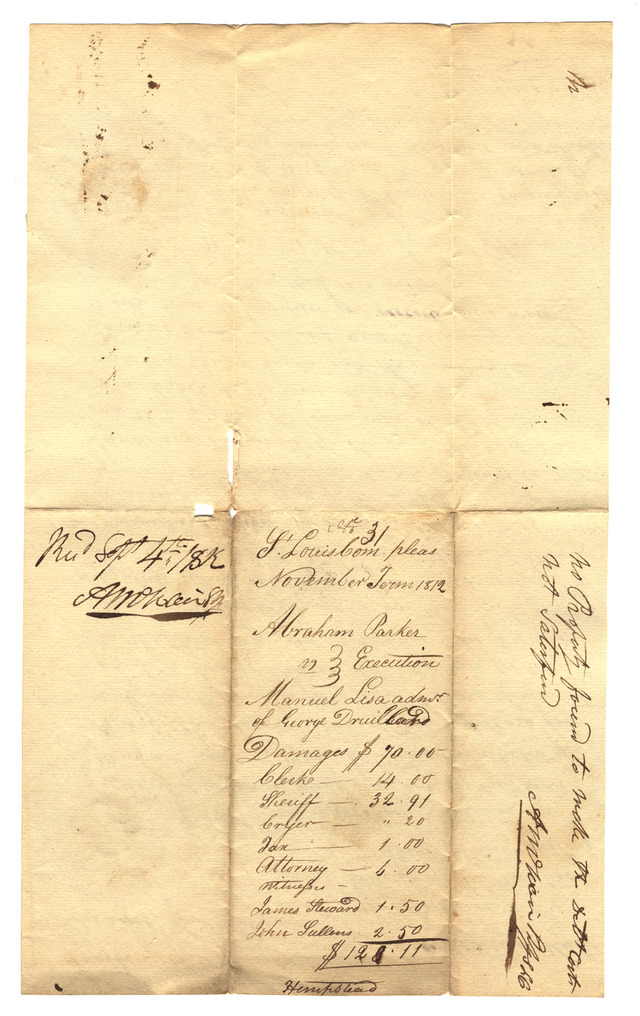 Recd Sept 4th 1812
No 31
St Louis Com. pleas
November Term 1812
Abraham Parker
vs } Execution
Manuel Lisa admr.
of George Druillard
Damages $ 70.00
Clerk — 14.00
Sheriff — 32.91
Cryer — " 20
Tax — 1.00
Attorney — 6.00
witnesses –
James Steward 1.50
John Sullens 2.50
$ 128.11
Hempstead
no Property found to make the debt &
not Satisfied